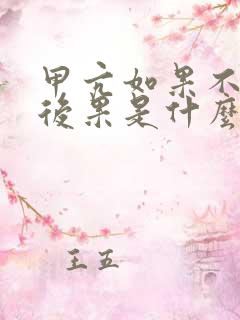 甲亢如果不
後果是什麼
王五